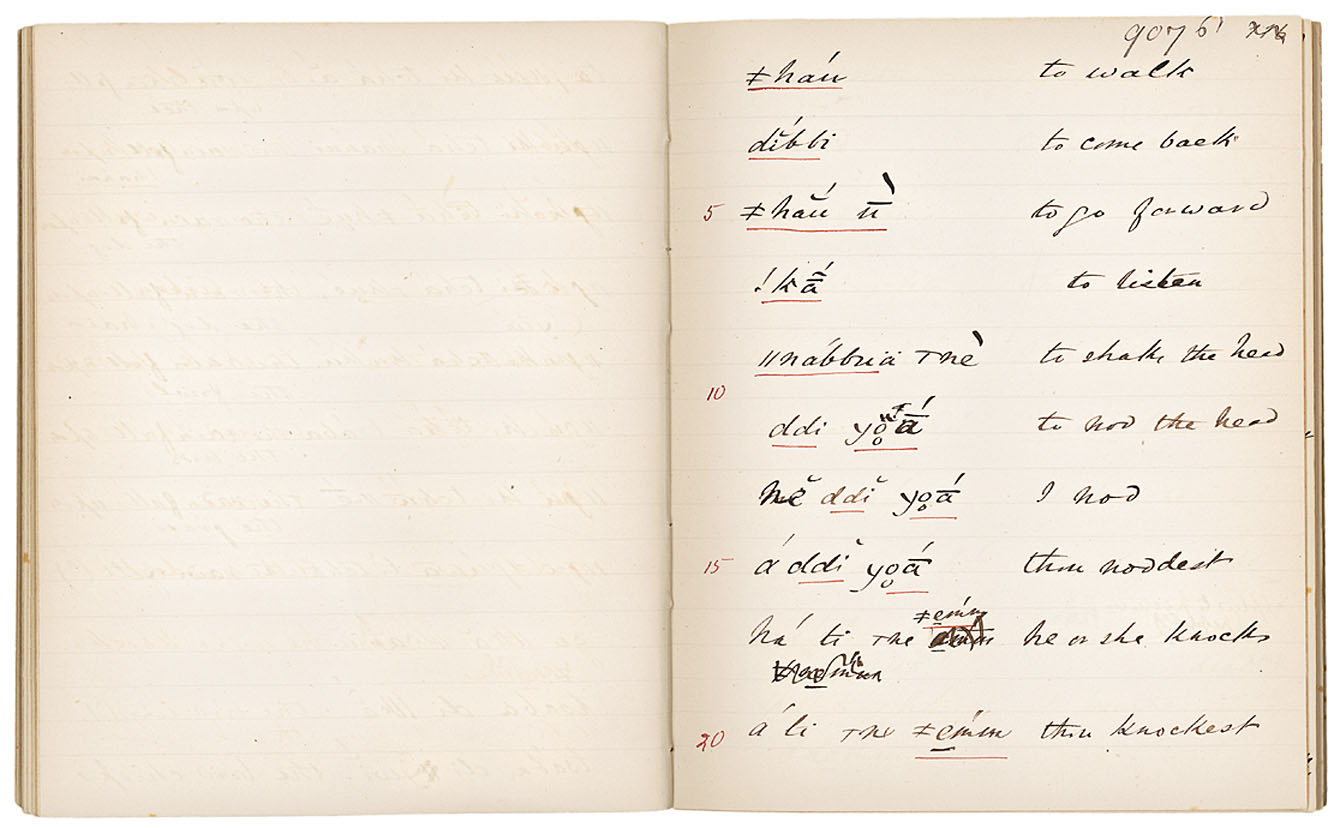 9076'
ǂháú to walk
dĭ́bbi to come back
5 ǂhắú ū̀ to go forward
!kā̃́ to listen
ǁnábbŭä́ Tnè to shake the head
10
ddi yo̥ā́ to nod the head
nĕ ddĭ yo̥ā́ I nod
15 á ddĭ yo̥ā́ thou noddest
há ti Tne ǂemḿ he or she knocks
20 á ti Tne ǂemḿ thou knockest